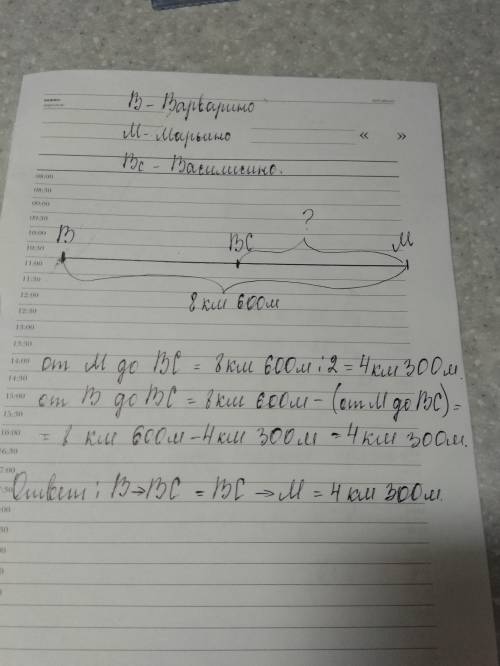 В - Варварино
М - Марьино
« »
Вс - Василисино.
08:00
08:30
09:00
09:30
?
10:00
В
ВС
М
10:30
11:00
11:30
8 км 600м
12:00
12:30
13:00
13:30
14:00
от М до ВС = 8 км 600м : 2 = 4 км 300м.
14:30
15:00
от В до ВС = 8 км 600м - (от М до ВС) =
15:30
16:00
= 8 км 600м - 4 км 300м = 4 км 300м.
16:30
17:00
Ответ : В → ВС = ВС → М = 4 км 300м.